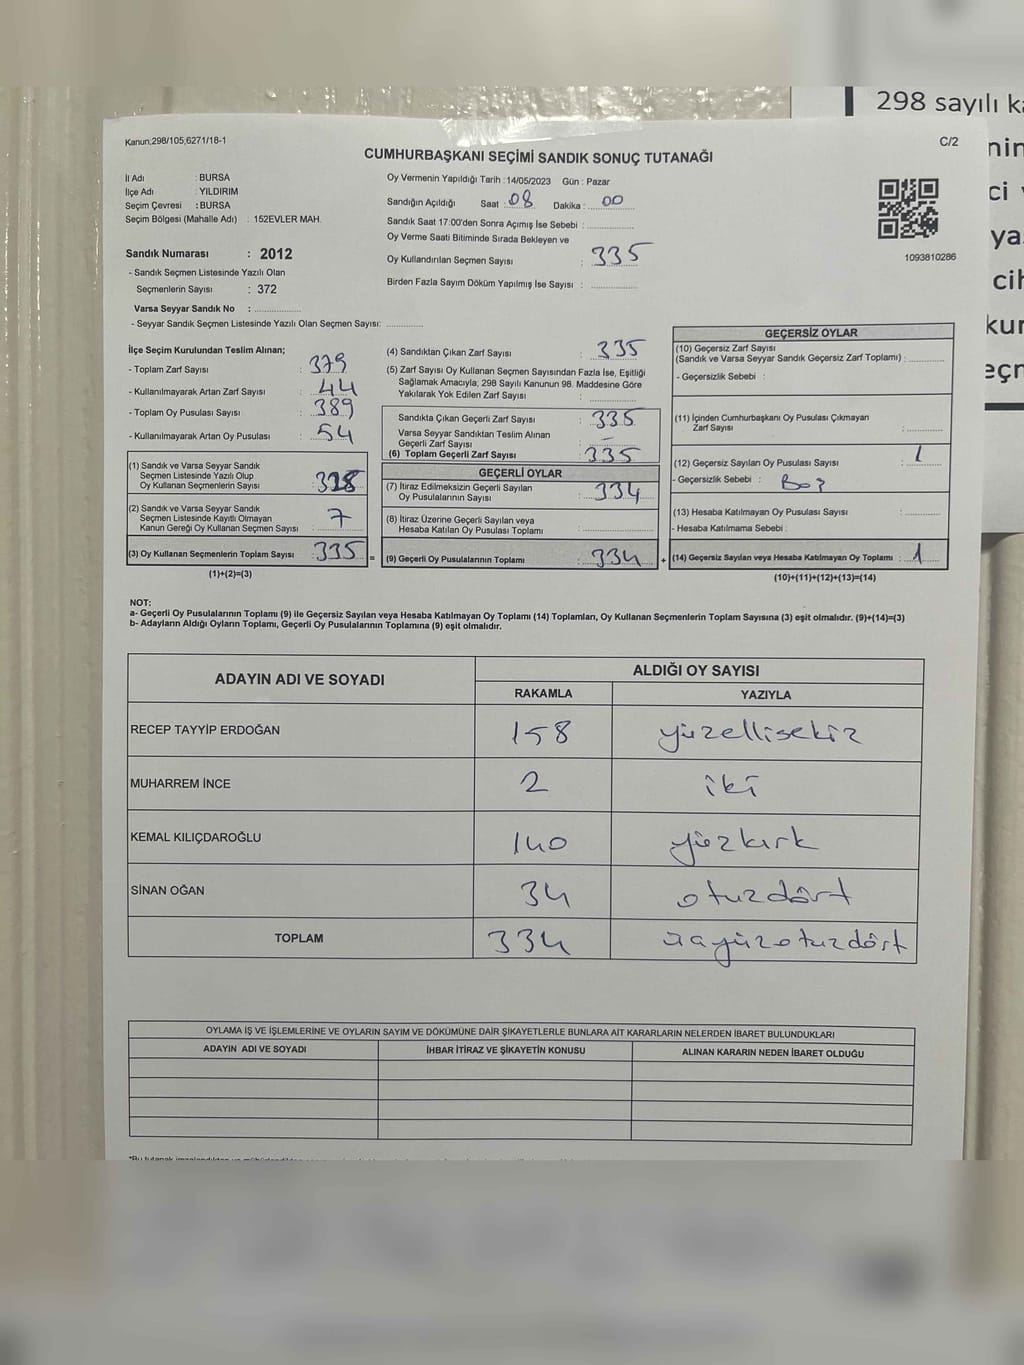 298 sayılı ka
nin
ci
ya
cih
kur
eçm
Kanun;298/105;6271/18-1
C/2
CUMHURBAŞKANI SEÇİMİ SANDIK SONUÇ TUTANAĞI
İl Adı : BURSA
İlçe Adı : YILDIRIM
Seçim Çevresi : BURSA
Seçim Bölgesi (Mahalle Adı) : 152EVLER MAH.
Sandık Numarası : 2012
- Sandık Seçmen Listesinde Yazılı Olan
Seçmenlerin Sayısı : 372
Varsa Seyyar Sandık No : ..............
- Seyyar Sandık Seçmen Listesinde Yazılı Olan Seçmen Sayısı: ............
Oy Vermenin Yapıldığı Tarih : 14/05/2023 Gün : Pazar
Sandığın Açıldığı Saat : 08 Dakika : 00
Sandık Saat 17:00'den Sonra Açımış İse Sebebi : ..............
Oy Verme Saati Bitiminde Sırada Bekleyen ve
Oy Kullandırılan Seçmen Sayısı : 335
Birden Fazla Sayım Döküm Yapılmış İse Sayısı : ..............
1093810286
İlçe Seçim Kurulundan Teslim Alınan;
- Toplam Zarf Sayısı : 379
- Kullanılmayarak Artan Zarf Sayısı : 44
- Toplam Oy Pusulası Sayısı : 389
- Kullanılmayarak Artan Oy Pusulası : 54
(1) Sandık ve Varsa Seyyar Sandık
Seçmen Listesinde Yazılı Olup
Oy Kullanan Seçmenlerin Sayısı : 328
(2) Sandık ve Varsa Seyyar Sandık
Seçmen Listesinde Kayıtlı Olmayan
Kanun Gereği Oy Kullanan Seçmen Sayısı : 7
(3) Oy Kullanan Seçmenlerin Toplam Sayısı : 335 =
(1)+(2)=(3)
(4) Sandıktan Çıkan Zarf Sayısı : 335
(5) Zarf Sayısı Oy Kullanan Seçmen Sayısından Fazla İse, Eşitliği
Sağlamak Amacıyla, 298 Sayılı Kanunun 98. Maddesine Göre
Yakılarak Yok Edilen Zarf Sayısı : ..............
Sandıkta Çıkan Geçerli Zarf Sayısı : 335
Varsa Seyyar Sandıktan Teslim Alınan
Geçerli Zarf Sayısı : –
(6) Toplam Geçerli Zarf Sayısı : 335
GEÇERLİ OYLAR
(7) İtiraz Edilmeksizin Geçerli Sayılan
Oy Pusulalarının Sayısı : 334
(8) İtiraz Üzerine Geçerli Sayılan veya
Hesaba Katılan Oy Pusulası Toplamı : ..............
(9) Geçerli Oy Pusulalarının Toplamı : 334 +
GEÇERSİZ OYLAR
(10) Geçersiz Zarf Sayısı
(Sandık ve Varsa Seyyar Sandık Geçersiz Zarf Toplamı) : ............
- Geçersizlik Sebebi :
(11) İçinden Cumhurbaşkanı Oy Pusulası Çıkmayan
Zarf Sayısı : ............
(12) Geçersiz Sayılan Oy Pusulası Sayısı : 1
- Geçersizlik Sebebi : Boş
(13) Hesaba Katılmayan Oy Pusulası Sayısı : ............
- Hesaba Katılmama Sebebi :
(14) Geçersiz Sayılan veya Hesaba Katılmayan Oy Toplamı : 1
(10)+(11)+(12)+(13)=(14)
NOT:
a- Geçerli Oy Pusulalarının Toplamı (9) ile Geçersiz Sayılan veya Hesaba Katılmayan Oy Toplamı (14) Toplamları, Oy Kullanan Seçmenlerin Toplam Sayısına (3) eşit olmalıdır. (9)+(14)=(3)
b- Adayların Aldığı Oyların Toplamı, Geçerli Oy Pusulalarının Toplamına (9) eşit olmalıdır.
ADAYIN ADI VE SOYADI
ALDIĞI OY SAYISI
RAKAMLA YAZIYLA
RECEP TAYYİP ERDOĞAN 158 yüzellisekiz
MUHARREM İNCE 2 iki
KEMAL KILIÇDAROĞLU 140 yüzkırk
SİNAN OĞAN 34 otuzdört
TOPLAM 334 üçyüzotuzdört
OYLAMA İŞ VE İŞLEMLERİNE VE OYLARIN SAYIM VE DÖKÜMÜNE DAİR ŞİKAYETLERLE BUNLARA AİT KARARLARIN NELERDEN İBARET BULUNDUKLARI
ADAYIN ADI VE SOYADI İHBAR İTİRAZ VE ŞİKAYETİN KONUSU ALINAN KARARIN NEDEN İBARET OLDUĞU